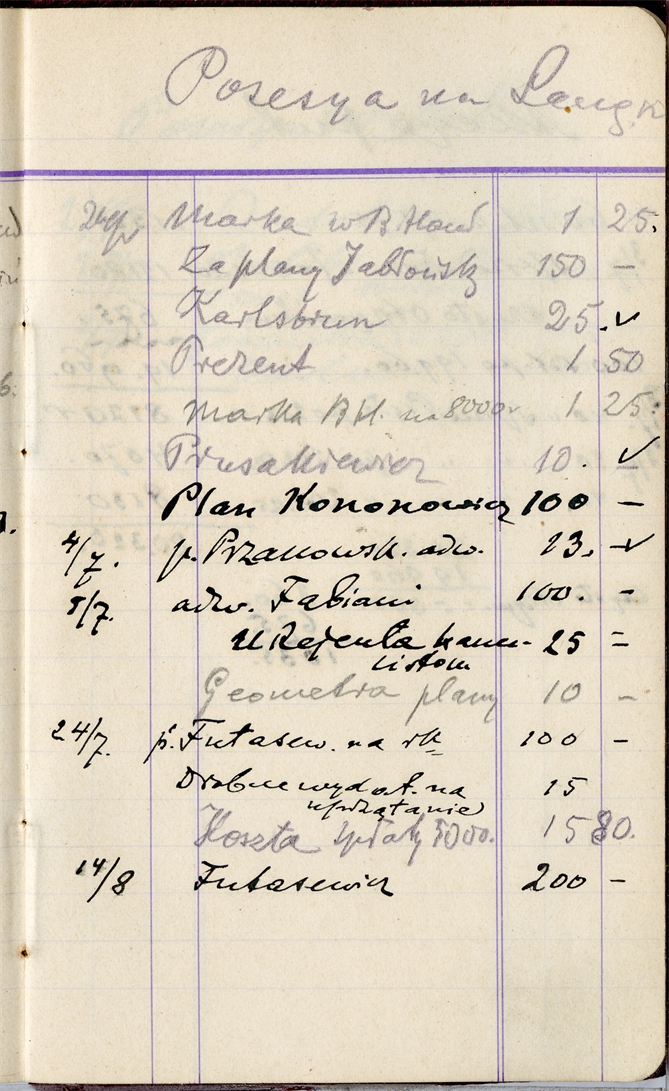 Posesya na Lang
Marka w B Hand 1 25.
Za plany Jabłońsk 150 —
Karlsbrun 25. ✓
Prezent 1 50
Marka B H. na 8000 r 1 25.
Prusakiewicz 10. ✓
Plan Kononowicz 100 —
4/7. p. Przanowsk. adw. 13. — ✓
5/7. adw. Fabiani 100. -
u Rejenta kance- 25 =
listom
Geometra plany 10 —
24/7. p. Futasew. na rk 100 —
Drobne wydat. na 15
uprzątanie
Koszta spłaty 5000. 15 80.
14/8 Futasewicz 200 —